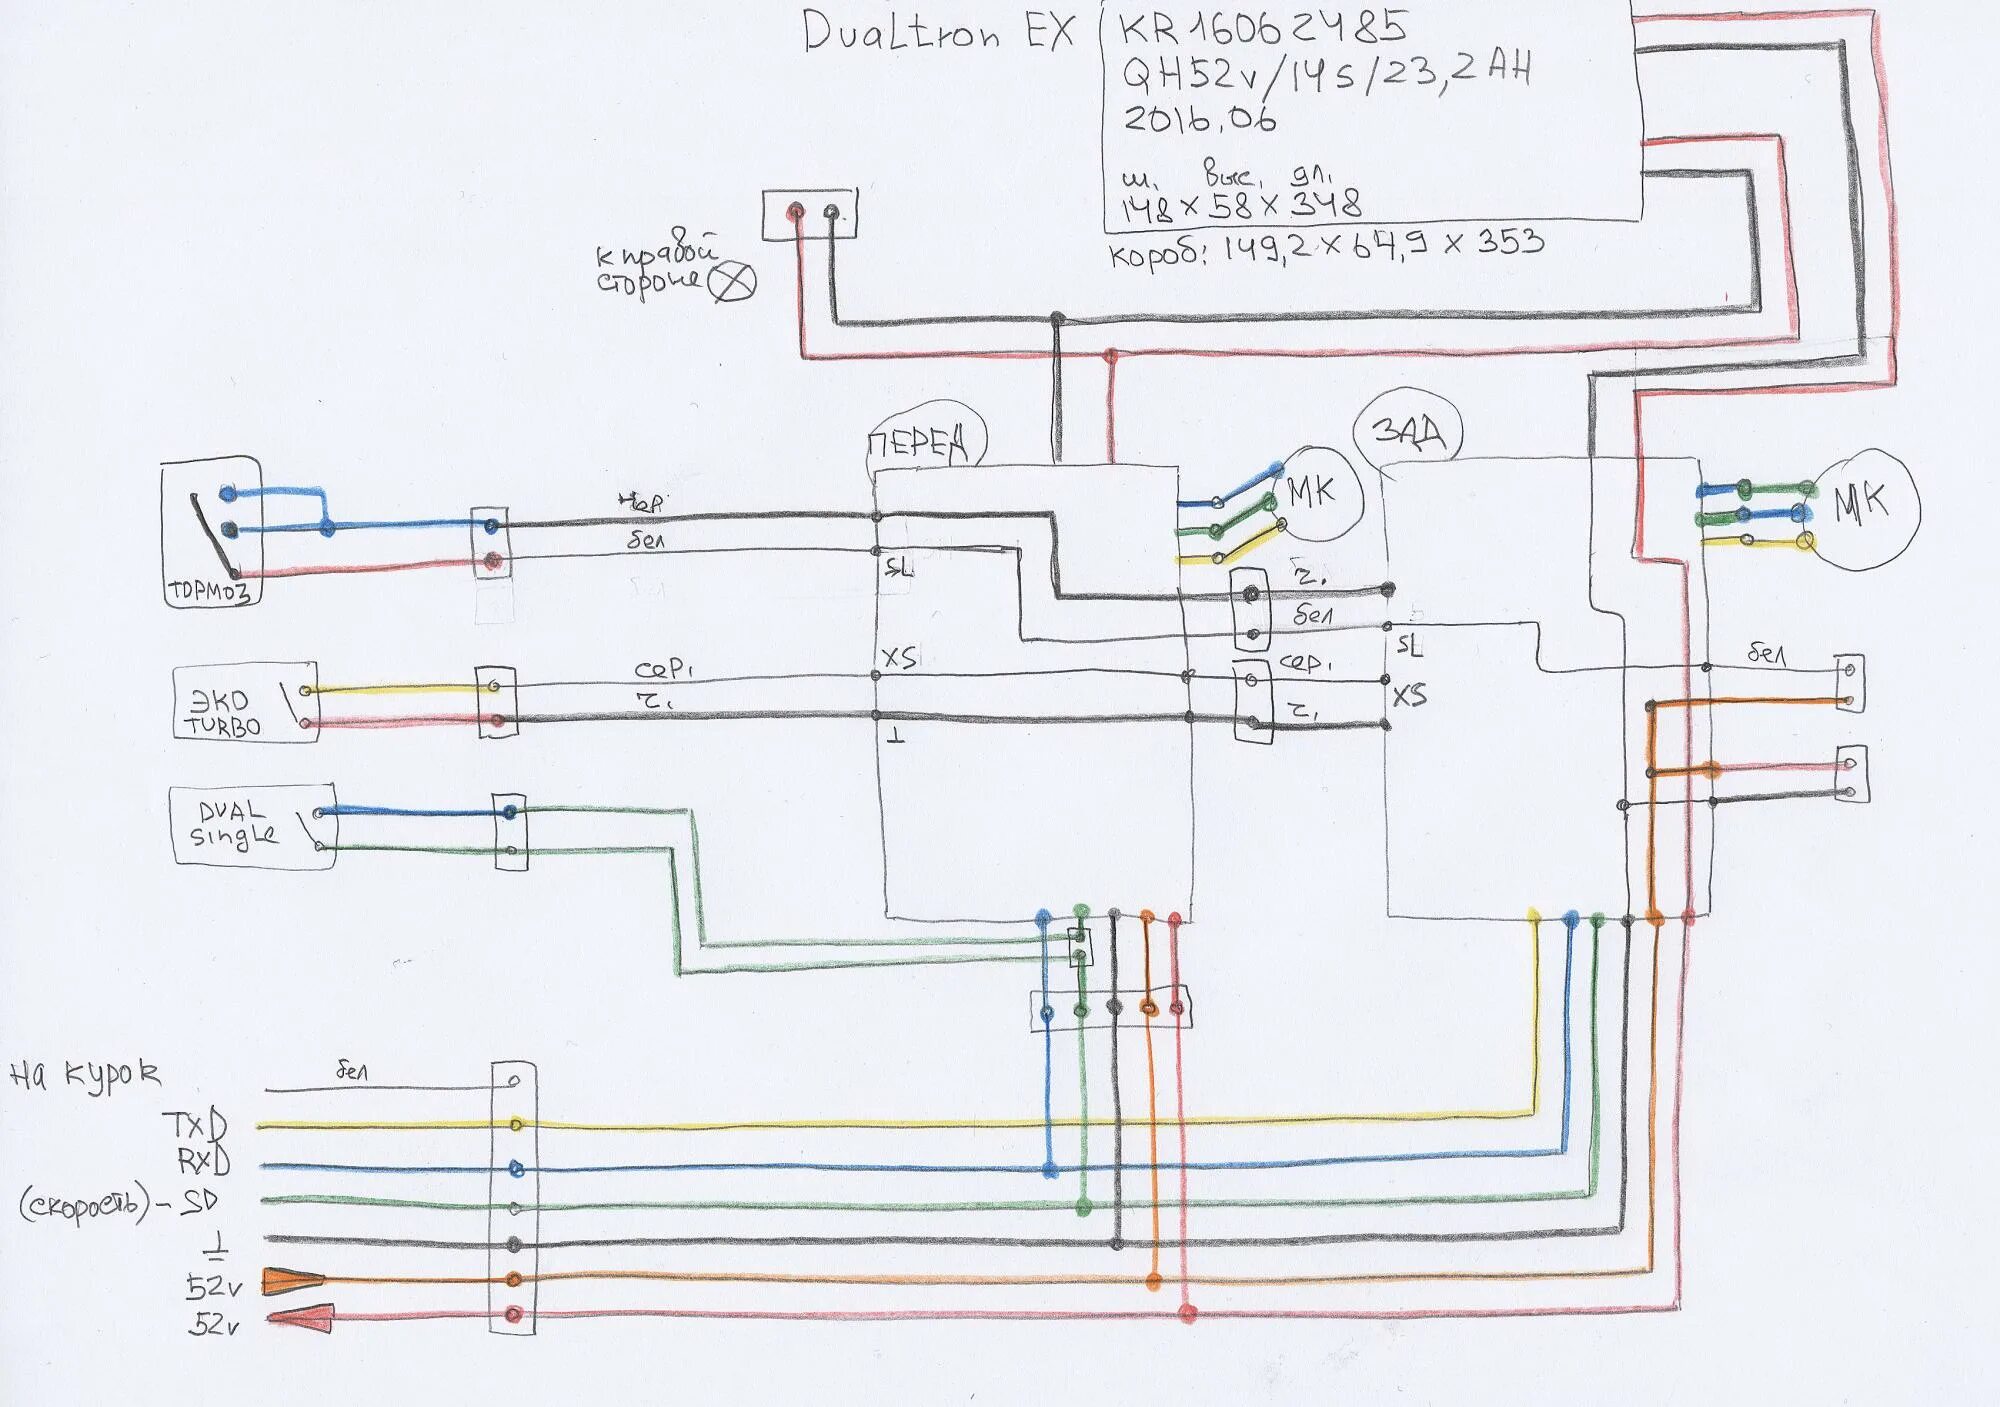 Dualtron EX
KR16062485
QH52v/14s/23,2AH
2016,06
ш. выс, дл,
148 x 58 x 348
короб: 149,2 x 64,9 x 353
к правой
стороне
ПЕРЕД
ЗАД
МК
МК
ТОРМОЗ
чер.
бел
SL
ч.
бел
SL
ЭКО
TURBO
сер,
ч.
XS
⊥
сер,
ч.
XS
бел
DUAL
single
на курок
бел
TXD
RXD
(скорость) - SD
⊥
52v
52v